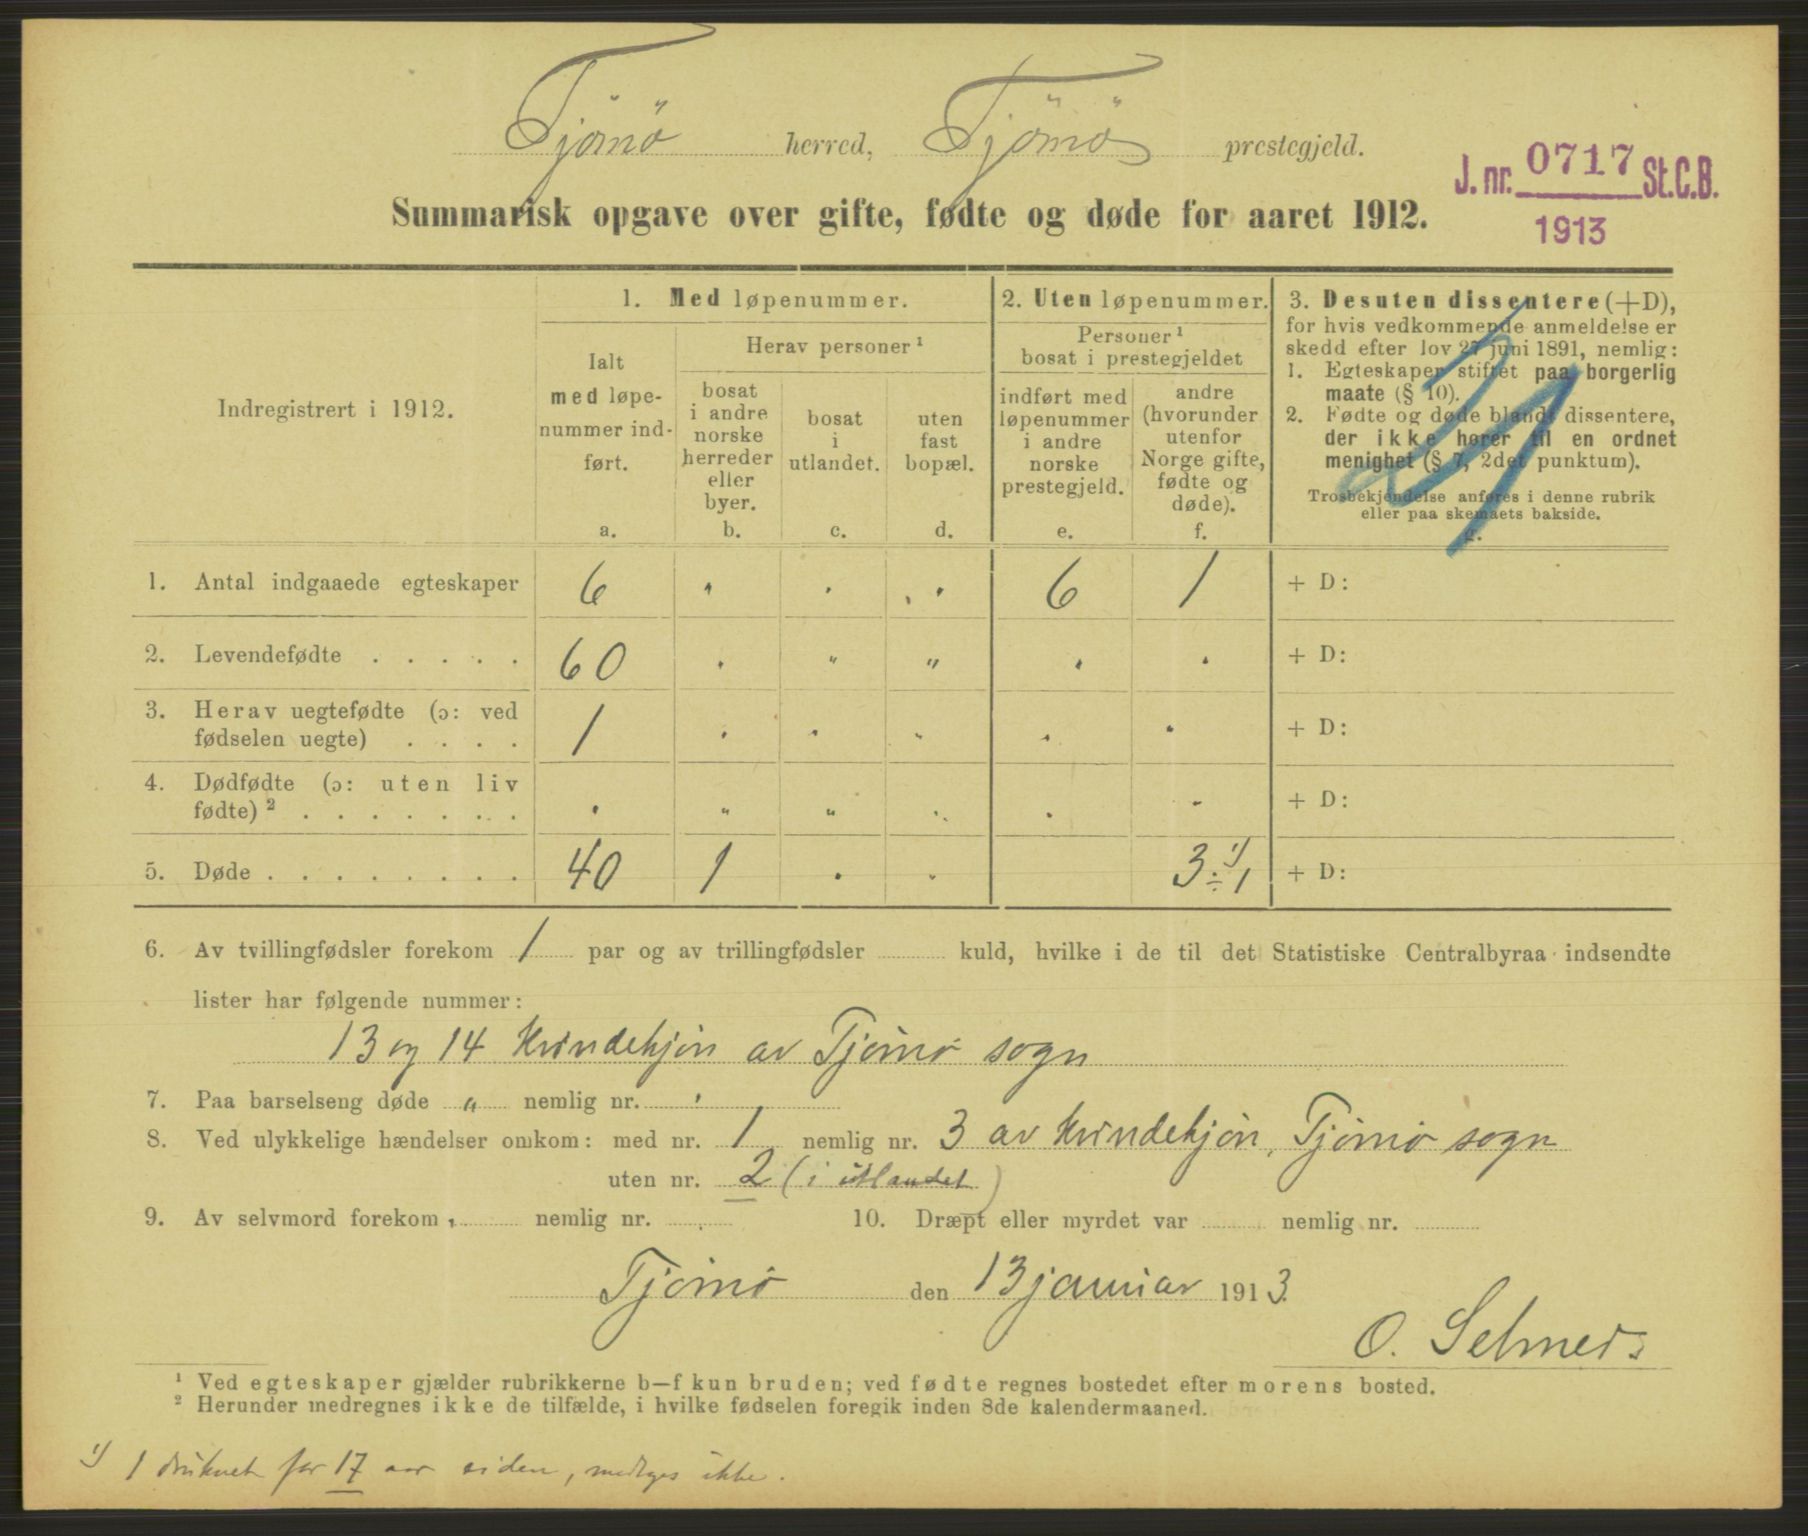 Tjömö herred, Tjömö prestegjeld.
J. nr. 0717 St. C. B.
1913
Summarisk opgave over gifte, fødte og døde for aaret 1912.
Indregistrert i 1912.
1. Med løpenummer.
Ialt
med løpe-
nummer ind-
ført.
a.
Herav personer ¹
bosat
i andre
norske
herreder
eller
byer.
b.
bosat
i
utlandet.
c.
uten
fast
bopæl.
d.
2. Uten løpenummer.
Personer ¹
bosat i prestegjeldet
indført med
løpenummer
i andre
norske
prestegjeld.
e.
andre
(hvorunder
utenfor
Norge gifte,
fødte og
døde).
f.
3. Desuten dissentere (+D),
for hvis vedkommende anmeldelse er
skedd efter lov 27 juni 1891, nemlig:
1. Egteskaper stiftet paa borgerlig
maate (§ 10).
2. Fødte og døde blandt dissentere,
der ikke hører til en ordnet
menighet (§ 7, 2det punktum).
Trosbekjendelse anføres i denne rubrik
eller paa skemaets bakside.
g.
21
1. Antal indgaaede egteskaper 6 " " " 6 1 + D:
2. Levendefødte . . . . . 60 " " " " " + D:
3. Herav uegtefødte (ɔ: ved
fødselen uegte) . . . . 1 " " " " " + D:
4. Dødfødte (ɔ: uten liv
fødte) ² . . . . . . . " " " " " " + D:
5. Døde . . . . . . . . 40 1 " " 3 ¹) ÷ 1 + D:
6. Av tvillingfødsler forekom 1 par og av trillingfødsler kuld, hvilke i de til det Statistiske Centralbyraa indsendte
lister har følgende nummer:
13 og 14 Kvindekjön av Tjömö sogn
7. Paa barselseng døde " nemlig nr. "
8. Ved ulykkelige hændelser omkom: med nr. 1 nemlig nr. 3 av Kvindekjön, Tjömö sogn
uten nr. 2 (i utlandet)
9. Av selvmord forekom " nemlig nr. " 10. Dræpt eller myrdet var nemlig nr.
Tjömö den 13 januar 1913.
O. Selmer
¹ Ved egteskaper gjælder rubrikkerne b—f kun bruden; ved fødte regnes bostedet efter morens bosted.
² Herunder medregnes ikke de tilfælde, i hvilke fødselen foregik inden 8de kalendermaaned.
¹) 1 druknet for 17 aar siden, medtages ikke.